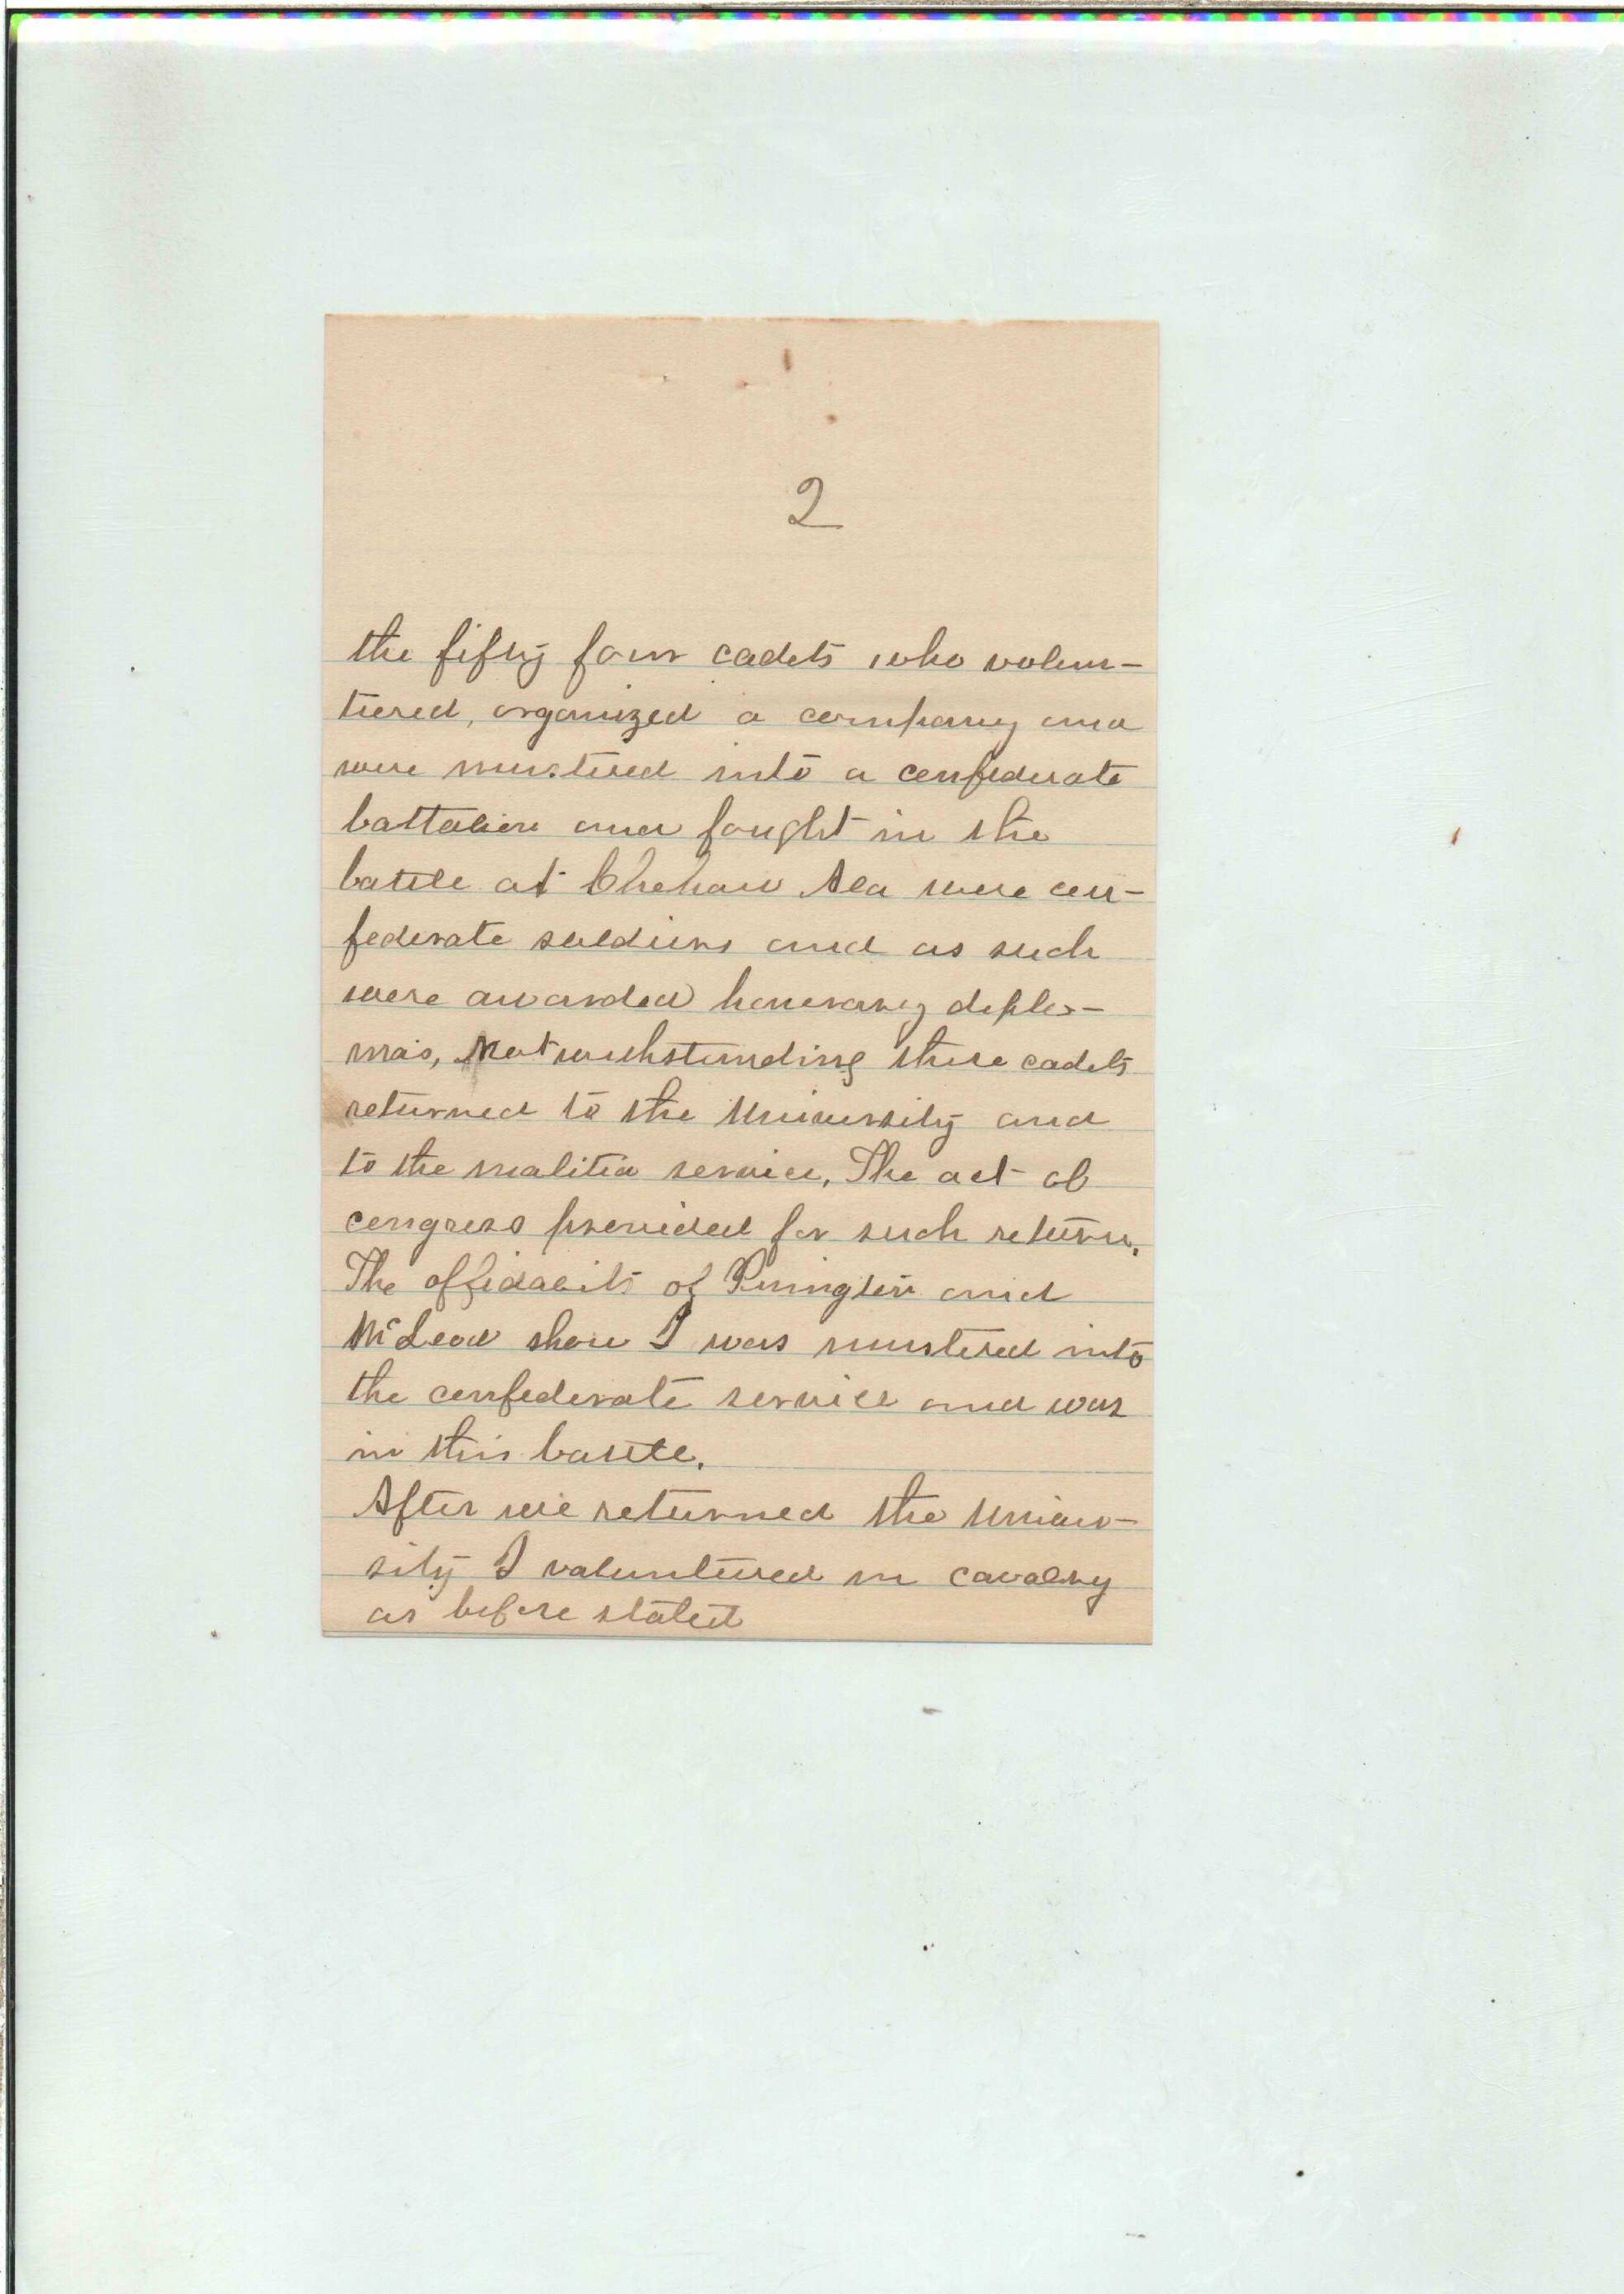 2
the fifty four cadets who volun-
tiered, organized a company and
were mustered into a confederate
battalion and fought in the
battle at Chehaw Ala were con-
federate soldiers and as such
were awarded honorary diplo-
mas, Notwithstanding these cadets
returned to the University and
to the malitia service. The act of
congress provided for such return.
The affidavits of and
McLeod show I was mustered into
the confederate service and was
in this battle.
After we returned the Univer-
sity I voluntered in cavalry
as before stated